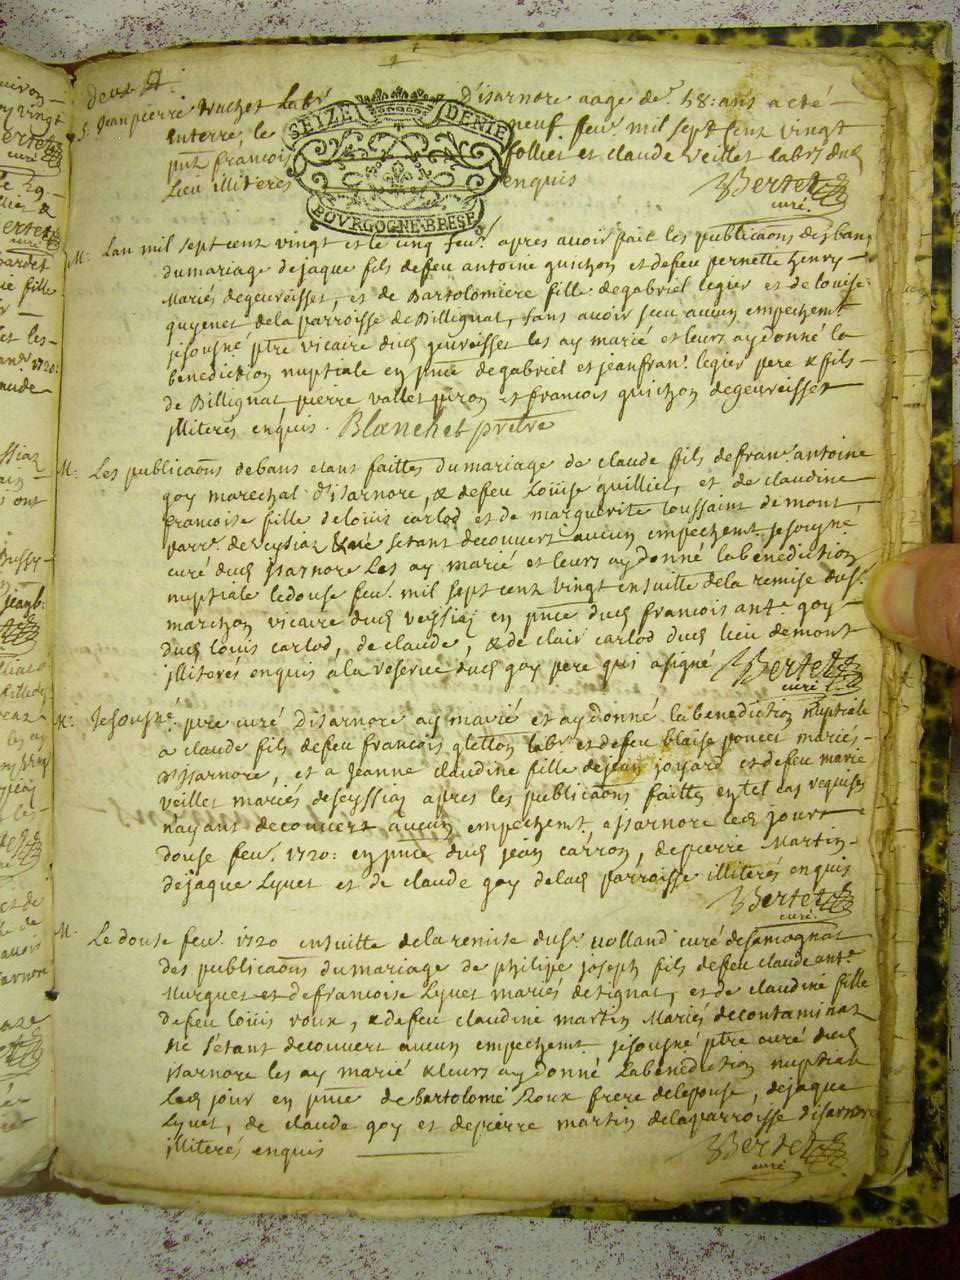 S. Jean pierre Labr d'isarnore aage de 58: ans a eté
Enterré le neuf feur mil sept cent vingt
pnt françois follies et claude veillet labrs dud
Lieu illiteres enquis Bertet
curé.
SEIZE DENIE
BOVRGOGNE BRESSE
M. Lan mil sept cent vingt et le cinq feur. apres avoir fait les publicaons des bans
du mariage de jaque fils de feu antoine guichon et de feu pernette henry
Mariés de geureisset, et de Bartolomiere fille de gabriel legier et de louise
guyenet de la parroisse de Billignat, sans avoir sceu aucun empechemt
je sousne ptre vicaire dud geureisset les ay marié et leurs ay donné la
benediction nuptiale en pnce de gabriel et jean fran. legier pere & fils
de Billignat pierre vallet piron et francois guichon de geureisset
illiterés enquis. Blanchet prêtre
M. Les publicaons de bans etant faittes du mariage de claude fils de fran. antoine
goy marechal d'isarnore, & de feu Louise guillier, et de claudine
francoise fille de louis carlod et de marguerite toussaint de mont,
parr. de veysiaz setant decouvert aucun empechemt je sousigne
curé dud jsarnore Les ay marié et leurs ay donné la benediction
nuptiale le douse feur. mil sept cent vingt ensuitte de la remise du sr.
marchon vicaire dud veyssiaz en pnce dud francois ante goy
dud louis carlod, de claude, & de clair carlod dud lieu de mont
illiterés enquis a la reserve dud goy pere qui a signé Bertet
curé
M. Je sousné ptre curé d'isarnore ay marié et ay donné la benediction nuptiale
a claude fils de feu francois gletton labr et de feu blaise poncet mariés
d'jsarnore, et a Jeanne claudine fille de jean joyard et de feu marie
veillet mariés de seyssiaz apres les publicaons faittes en tel cas requises
n'ayant decouvert aucun empechemt, a jsarnore led jour
douse feur. 1720: en pnce dud jean carron, de pierre Martin
de jaque Lyvet et de claude goy de lad parroisse illiterés enquis
Bertet
curé.
M. Le douse feur. 1720 ensuitte de la remise du sr. volland curé de samognat
des publicaons du mariage de philipe joseph fils de feu claude ante
Murguet et de francoise Lyvet mariés de tignat, et de claudine fille
de feu louis roux, & de feu claudine martin Mariés de contamiaz
ne s'etant decouvert aucun empechemt je sousné ptre curé dud
jsarnore les ay marié & leurs ay donné la benediction nuptiale
Led jour en pnce de bartolomé Roux frere de lepouse, de jaque
Lyvet, de claude goy et de pierre martin de la parroisse d'isarnore
illiterés enquis Bertet
curé